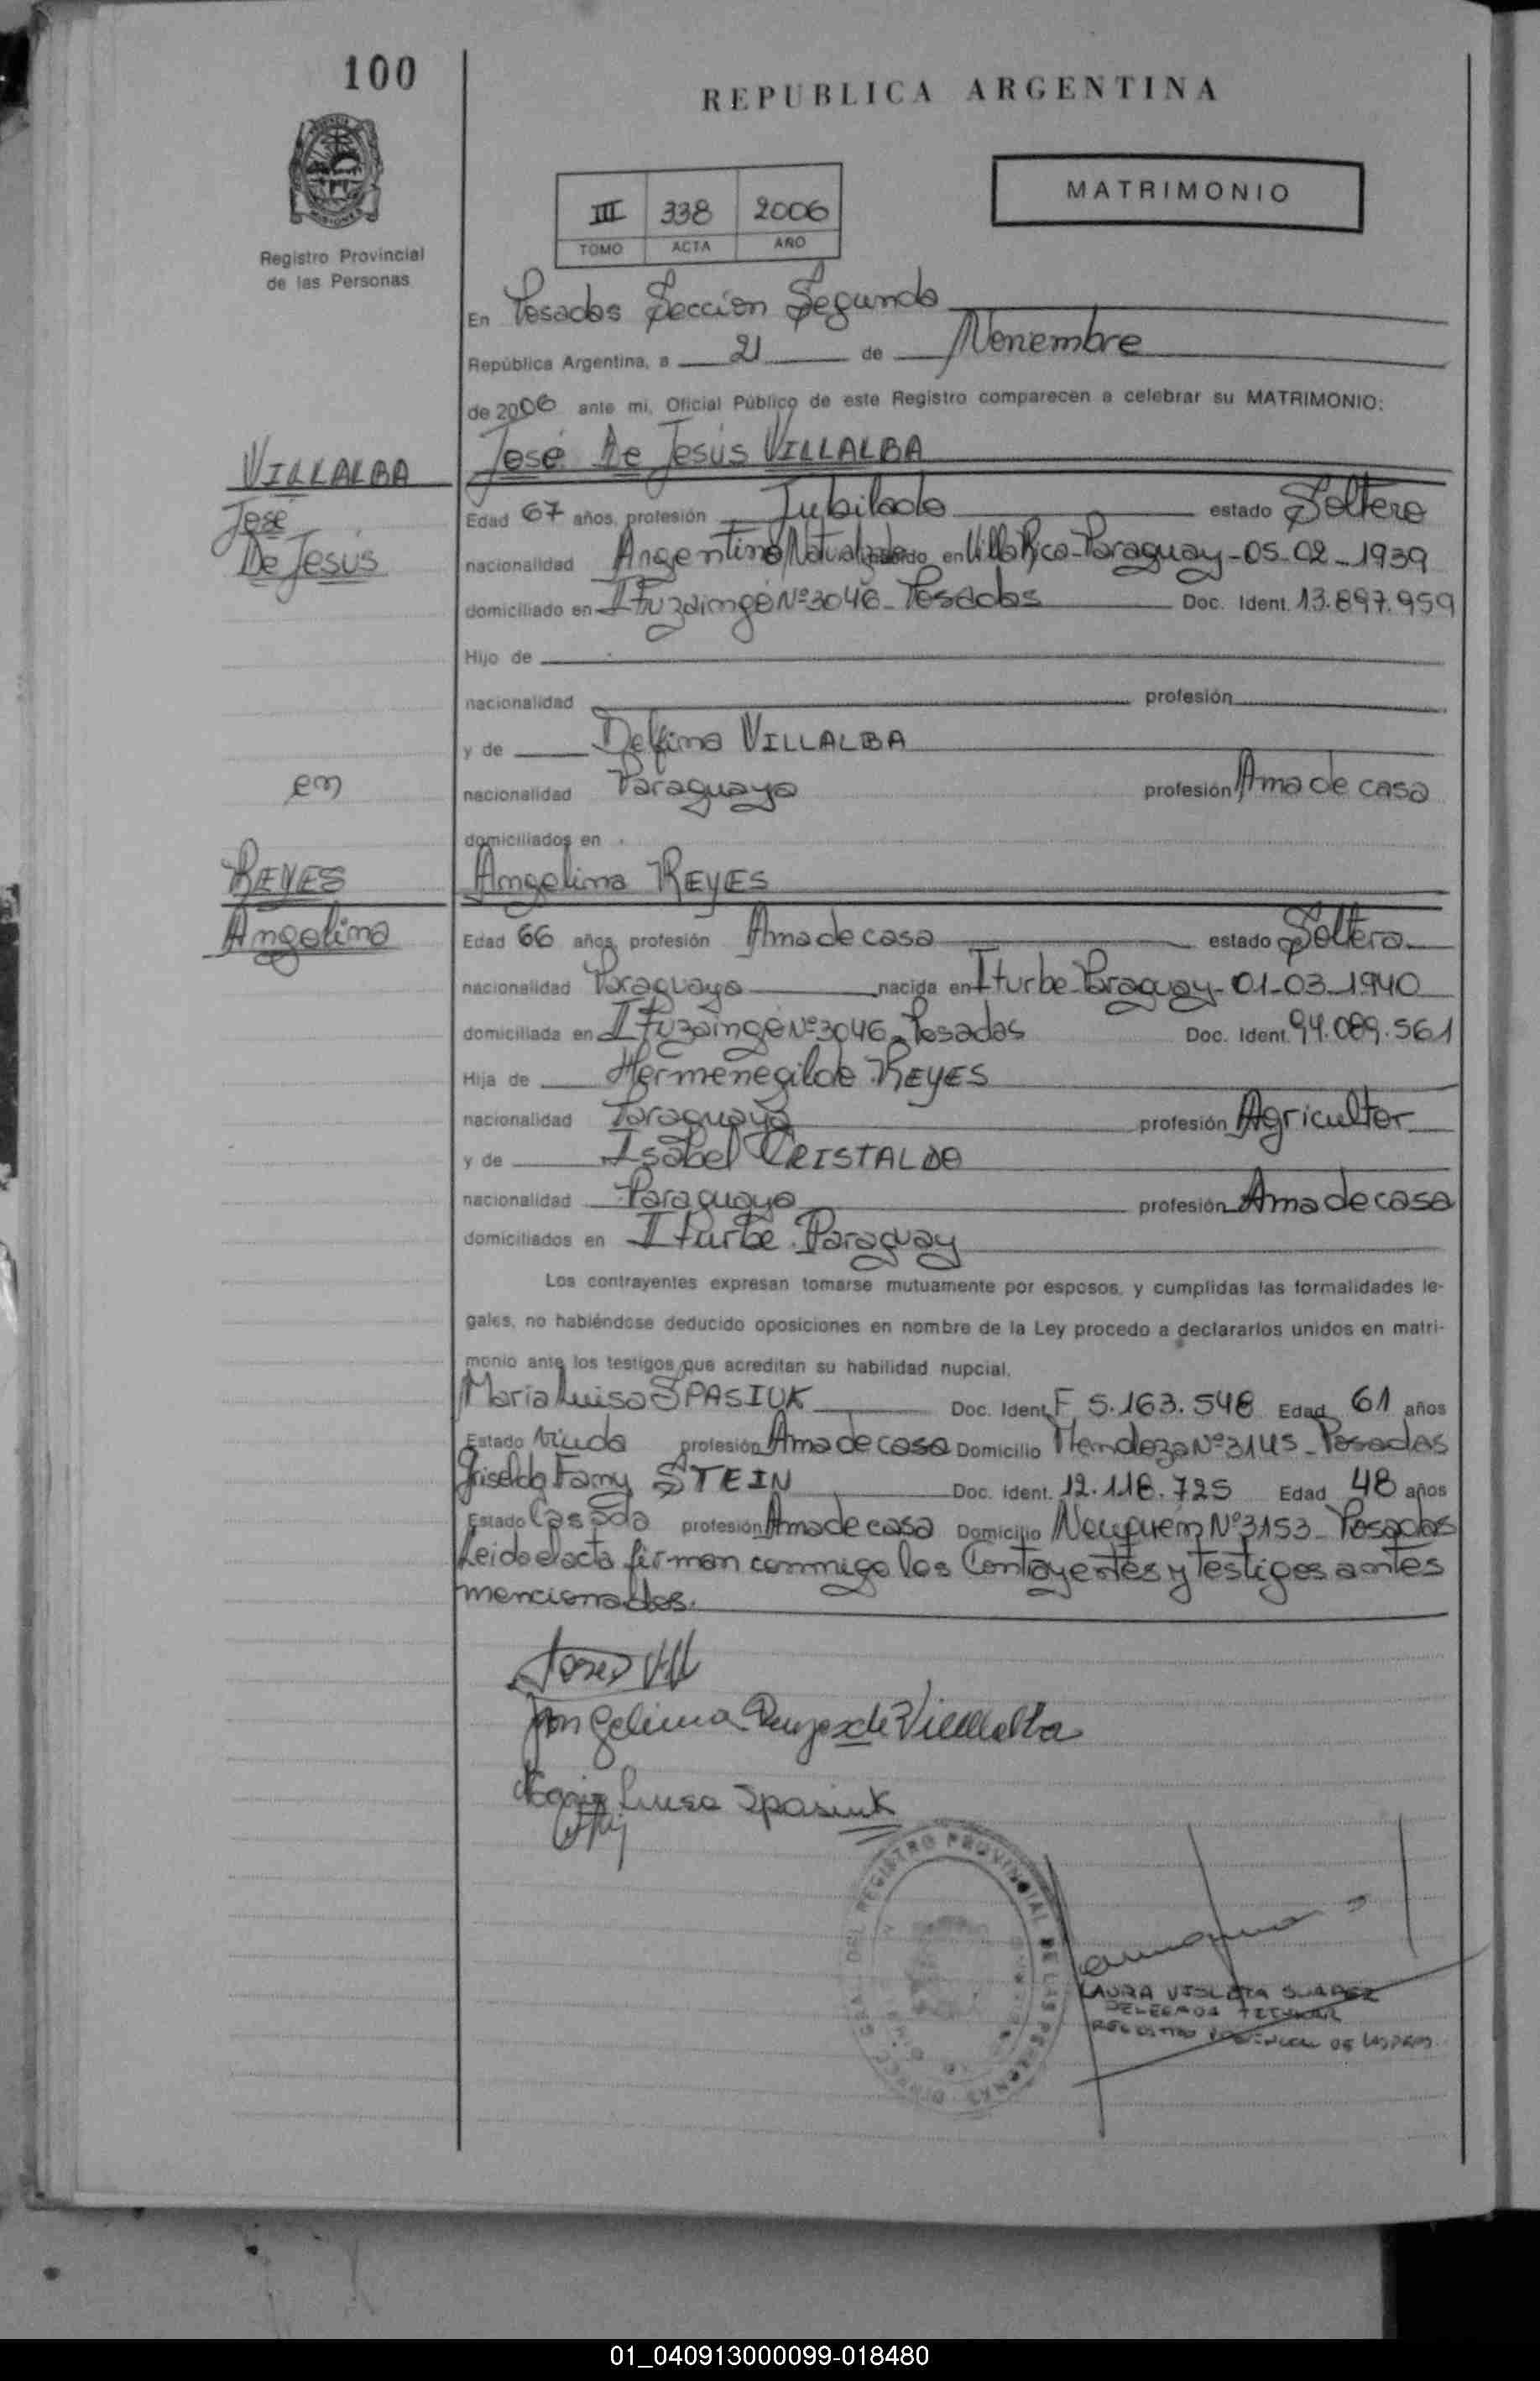 100
REPUBLICA ARGENTINA
MATRIMONIO
III 338 2006
TOMO ACTA AÑO
Registro Provincial
de las Personas
En Posadas Seccion Segunda
República Argentina, a 21 de Noviembre
de 2006 ante mi, Oficial Público de este Registro comparecen a celebrar su MATRIMONIO:
VILLALBA
José
De Jesús
José De Jesús VILLALBA
Edad 67 años, profesión Jubilado estado Soltero
nacionalidad Argentino/Naturalizado nacido en Villa Rica-Paraguay-05-02-1939
domiciliado en Ituzaingó Nº3046-Posadas Doc. Ident. 13.897.959
Hijo de
nacionalidad profesión
y de Delfina VILLALBA
en
nacionalidad Paraguaya profesión Ama de casa
domiciliados en
REYES
Angelina
Angelina REYES
Edad 66 años, profesión Ama de casa estado Soltera
nacionalidad Paraguaya nacida en Iturbe-Paraguay-01-03-1940
domiciliada en Ituzaingó Nº3046-Posadas Doc. Ident. 94.089.561
Hija de Hermenegildo REYES
nacionalidad Paraguaya profesión Agricultor
y de Isabel CRISTALDO
nacionalidad Paraguaya profesión Ama de casa
domiciliados en Iturbe-Paraguay
Los contrayentes expresan tomarse mutuamente por esposos, y cumplidas las formalidades le-
gales, no habiéndose deducido oposiciones en nombre de la Ley procedo a declararlos unidos en matri-
monio ante los testigos que acreditan su habilidad nupcial.
Maria Luisa SPASIUK Doc. Ident. F 5.163.548 Edad 61 años
Estado Viuda profesión Ama de casa Domicilio Mendoza Nº3145-Posadas
Griselda Fany STEIN Doc. Ident. 12.118.725 Edad 48 años
Estado Casada profesión Ama de casa Domicilio Neuquén Nº3153-Posadas
Leida el acta firman conmigo los Contayentes y testigos antes
mencionados.
Angelina Reyes de Villalba
Maria Luisa Spasiuk
DEL REGISTRO PROVINCIAL DE LAS PERSONAS
LAURA VIOLETA SUAREZ
DELEGADA TITULAR
REGISTRO PROVINCIAL DE LAS PERS.
01_040913000099-018480